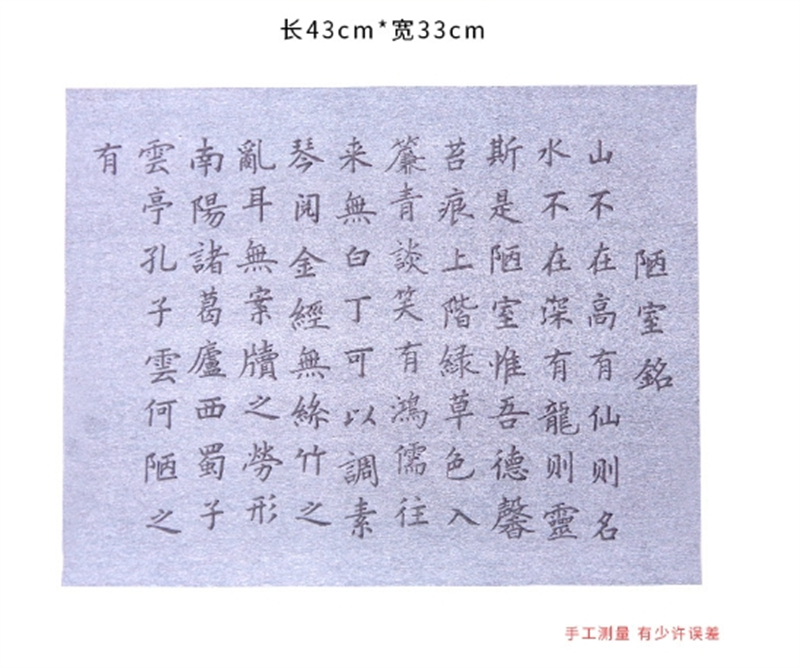 长43cm*宽33cm
陋室銘
山不在高有仙则名
水不在深有龍则靈
斯是陋室惟吾德馨
苔痕上階緑草色入
簾青談笑有鴻儒往
来無白丁可以調素
琴阅金經無絲竹之
亂耳無案牘之勞形
南陽諸葛廬西蜀子
雲亭孔子雲何陋之
有
手工测量 有少许误差